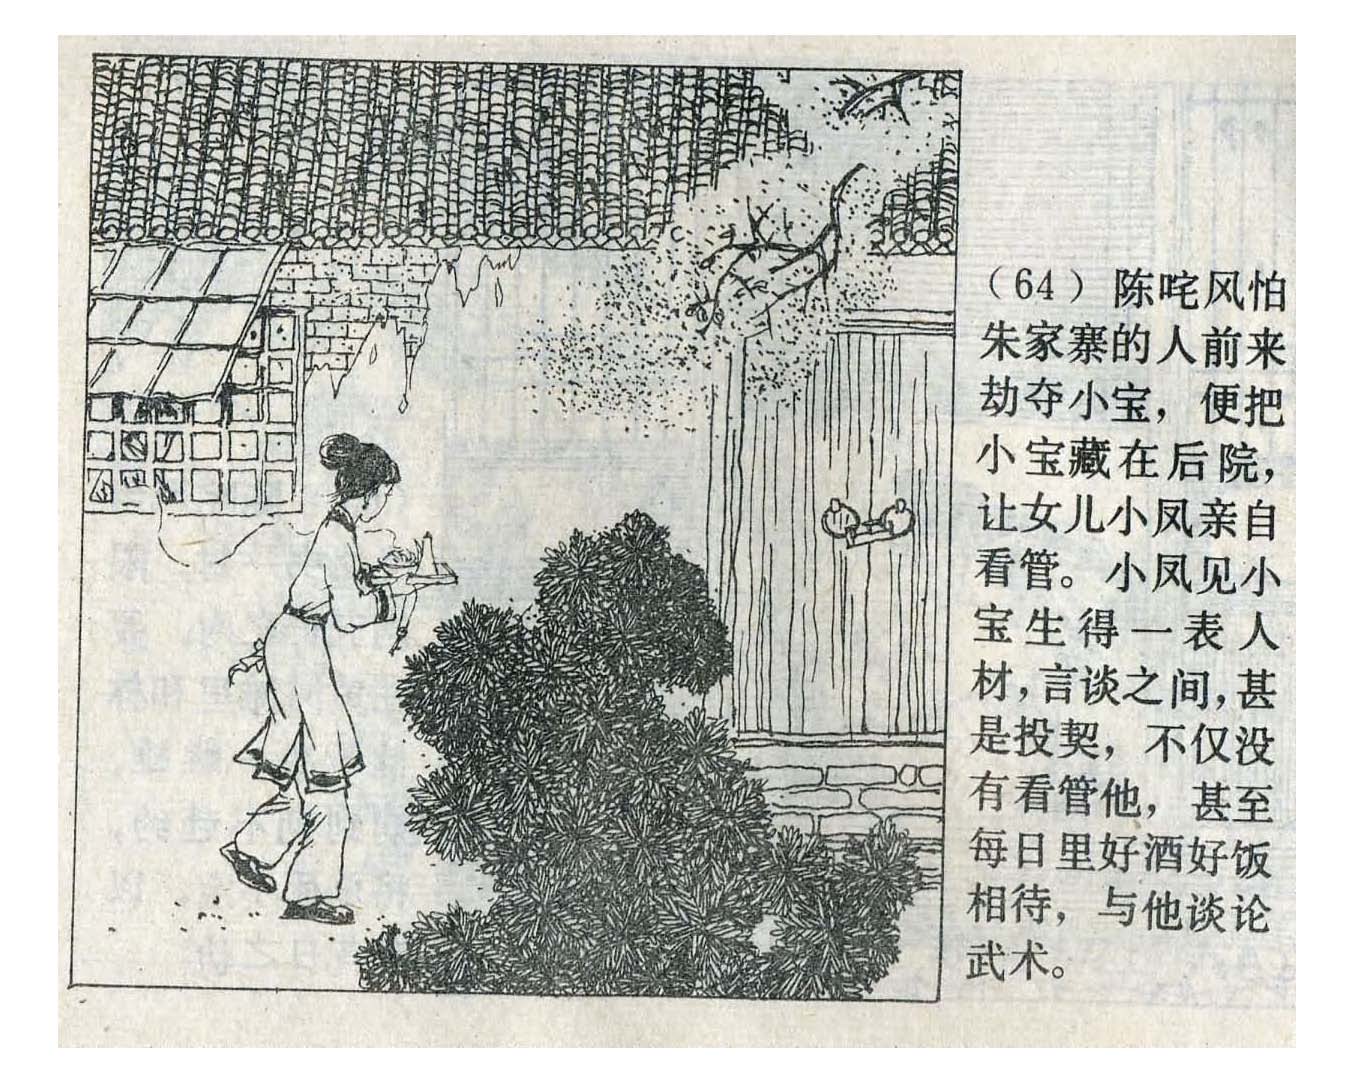 （64）陈咤风怕
朱家寨的人前来
劫夺小宝，便把
小宝藏在后院，
让女儿小凤亲自
看管。小凤见小
宝生得一表人
材，言谈之间，甚
是投契，不仅没
有看管他，甚至
每日里好酒好饭
相待，与他谈论
武术。